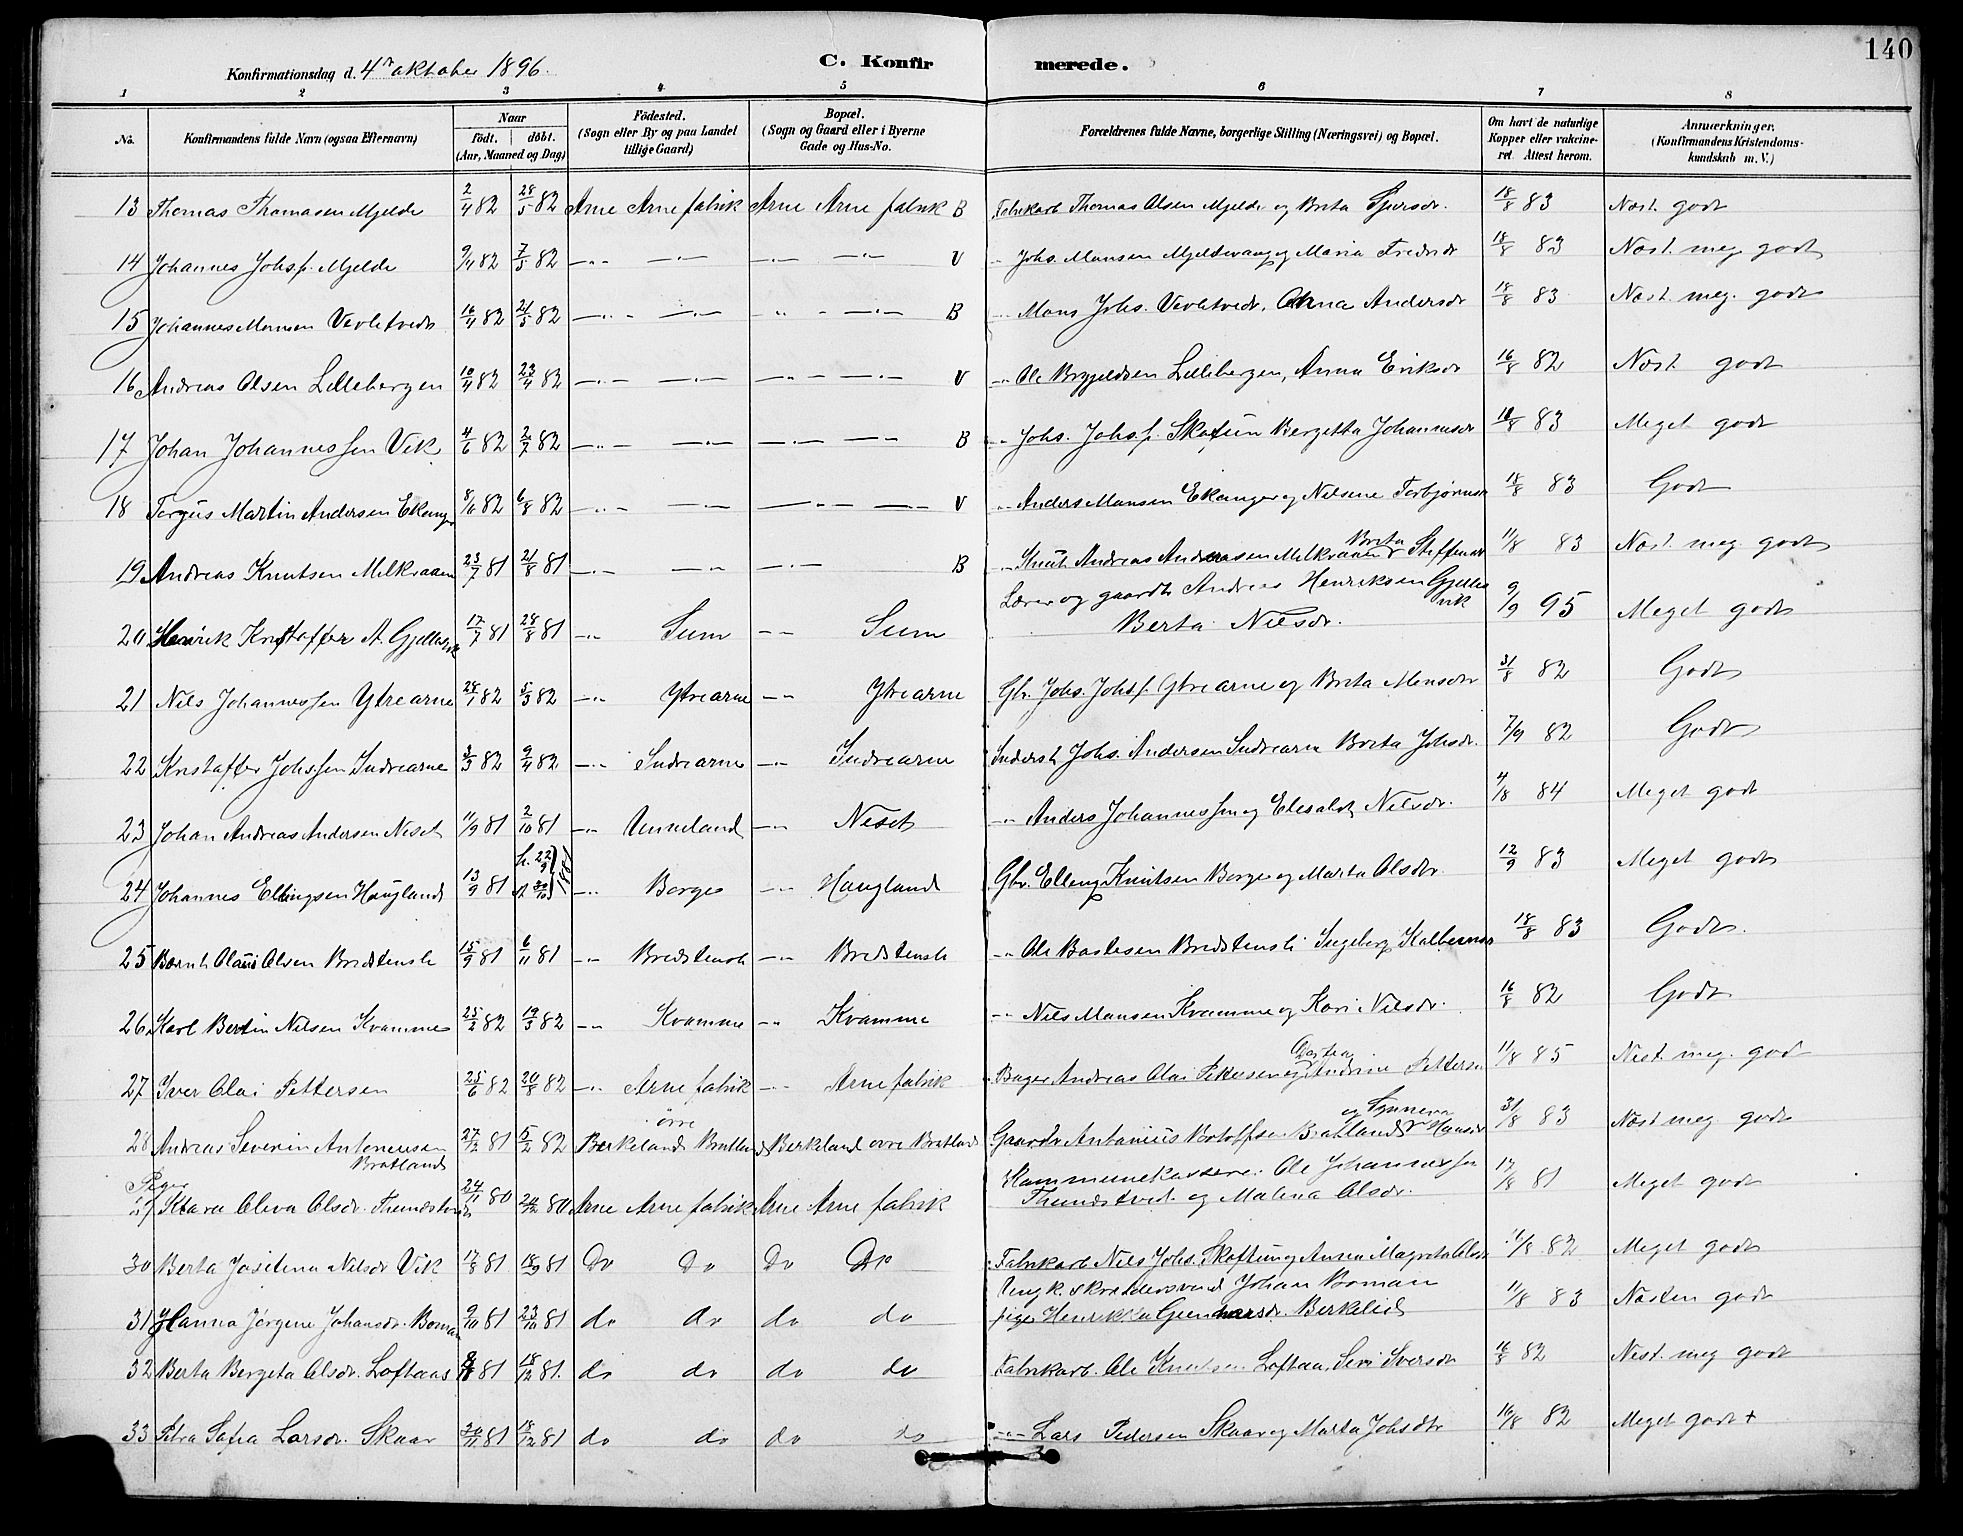 140
Konfirmationsdag d. 4de oktober 1896.
C. Konfirmerede.
1 2 3 4 5 6 7 8
No. Konfirmandens fulde Navn (ogsaa Efternavn) Naar født. døbt. (Aar, Maaned og Dag) Fødested. (Sogn eller By og paa Landet tillige Gaard) Bopæl. (Sogn og Gaard eller i Byerne Gade og Hus-No. Forældrenes fulde Navne, borgerlige Stilling (Næringsvei) og Bopæl. Om havt de naturlige Kopper eller vakcineret. Attest herom. Anmærkninger. (Konfirmandens Kristendomskundskab m. V.)
13 Thomas Thomasen Mjelde 2/4 82 28/5 82 Arne Arne fabrik Arne Arne fabrik B Fabrikarb Thomas Olsen Mjelde og Brita 18/8 83 Næst. godt
14 Johannes Johsf. Mjelde 9/4 82 7/5 82 —"— —"— —"— —"— V " Johs. Monsen og Maria 18/8 83 Næst. meg. godt
15 Johannes Monsen 16/4 82 21/5 82 —"— —"— " —"— B —"— Mons Johs. Anna Andersdr 18/8 83 Næst. meg. godt
16 Andreas Olsen Lillebergen 10/4 82 23/4 82 —"— —"— —"— —"— V —"— Ole Lillebergen, Anna Eriksdr 16/8 82 Næst godt
17 Johan Johannessen Vik 4/6 82 2/7 82 —"— —"— —"— —"— B —"— Johs. Johsf. Bergetta Johannesdr 18/8 83 Meget godt
18 Martin Andersen Ekanger 82 6/8 82 —"— —"— —"— —"— V —"— Anders Monsen Ekanger og Nilsine Torbjørnsdr 18/8 83 Godt
19 Andreas Knutsen Melkraaen 23/7 81 21/8 81 —"— —"— —"— B —"— Knut Andreas Andreasen Melkraaen Brita Steffensdr 11/8 83 Næst. meg. godt
20 Henrik Kristoffer A. Gjellesvik 17/7 81 28/8 81 —"— —"— Lærer og gaardb Andreas Henriksen Gjellesvik
Berta Nilsdr. 9/9 95 Meget godt
21 Nils Johannessen Ytrearne 28/1 82 5/3 82 —"— Ytrearne —"— Ytrearne Gbr. Johs. Johsf. Ytrearne og Brita Monsdr 31/8 82 Godt
22 Kristoffer Johssen Indrearne 82 9/4 82 —"— Indrearne —"— Indrearne Johs. Andersen Indrearne Brita Johsdr. 7/9 82 Godt
23 Johan Andreas Andersen Neset 11/9 81 2/10 81 —"— Unneland —"— Neset —"— Anders Johannessen og Nilsdr. 4/8 84 Meget godt
24 Johannes Ellingsen Haugland 13/9 81 h. 22/9 k 30/10 1881 —"— Borge —"— Haugland Gbr. Elling Knutsen Borge og Marta Olsdr. 12/9 83 Meget godt
25 Olaus Olsen Bredstensli 15/9 81 6/11 81 —"— Bredstensli —"— Bredstensli —"— Ole Bredstensli Ingeborg 18/8 83 Godt.
26 Karl Bertin Nilsen Kvamme 25/2 82 19/3 82 —"— Kvamme —"— Kvamme —"— Nils Monsen Kvamme og Kari Nilsdr. 16/8 82 Godt
27 Iver Olai Pettersen 25/6 82 20/8 82 —"— Arne fabrik —"— Arne fabrik Bager Andreas Olai og Pettersen 11/8 85 Næst. meg. godt
28 Andreas Severin Antoniussen Bratland 27/12 81 5/2 82 Birkeland øvre Bratland Birkeland øvre Bratland Gaardbr Antonius Botolfsen Bratland og Synneva Hansdr 31/8 83 Næst meg godt
Piger
29 Klara Oliva Olsdr. 24/11 80 80 Arne Arne fabrik Arne Arne fabrik Kommunekasserer Ole Johannessen
og Malena Olsdr. 17/8 81 Meget godt
30 Berta Josefina Nilsdr Vik 17/8 81 18/9 81 Do Do Do Do Fabrikarb. Nils Johs. Skaftun og Anna Magreta Olsdr 11/8 82 Meget godt
31 Hanna Jørgine Johansdr. Boman 9/10 81 23/10 81 do do do do Ung k. skræddersvend Johan Boman
pige Henrikka Berklid 11/8 83 Næsten godt
32 Berta Bergeta Olsdr. Loftaas 81 18/12 81. do do do do Fabrikarb. Ole Knutsen Loftaas, Siri Iversdr 16/8 82 Næst. meg godt
33 Petra Sofia Larsdr. Skaar 20/11 81 18/12 81 do do do do —"— Lars Pedersen Skaar og Marta Johsdtr 16/8 82 Meget godt +